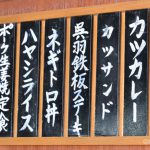 カツカレー
カツサンド
呉羽鉄板ステーキ
ネギトロ丼
ハヤシライス
ポーク生姜焼定食